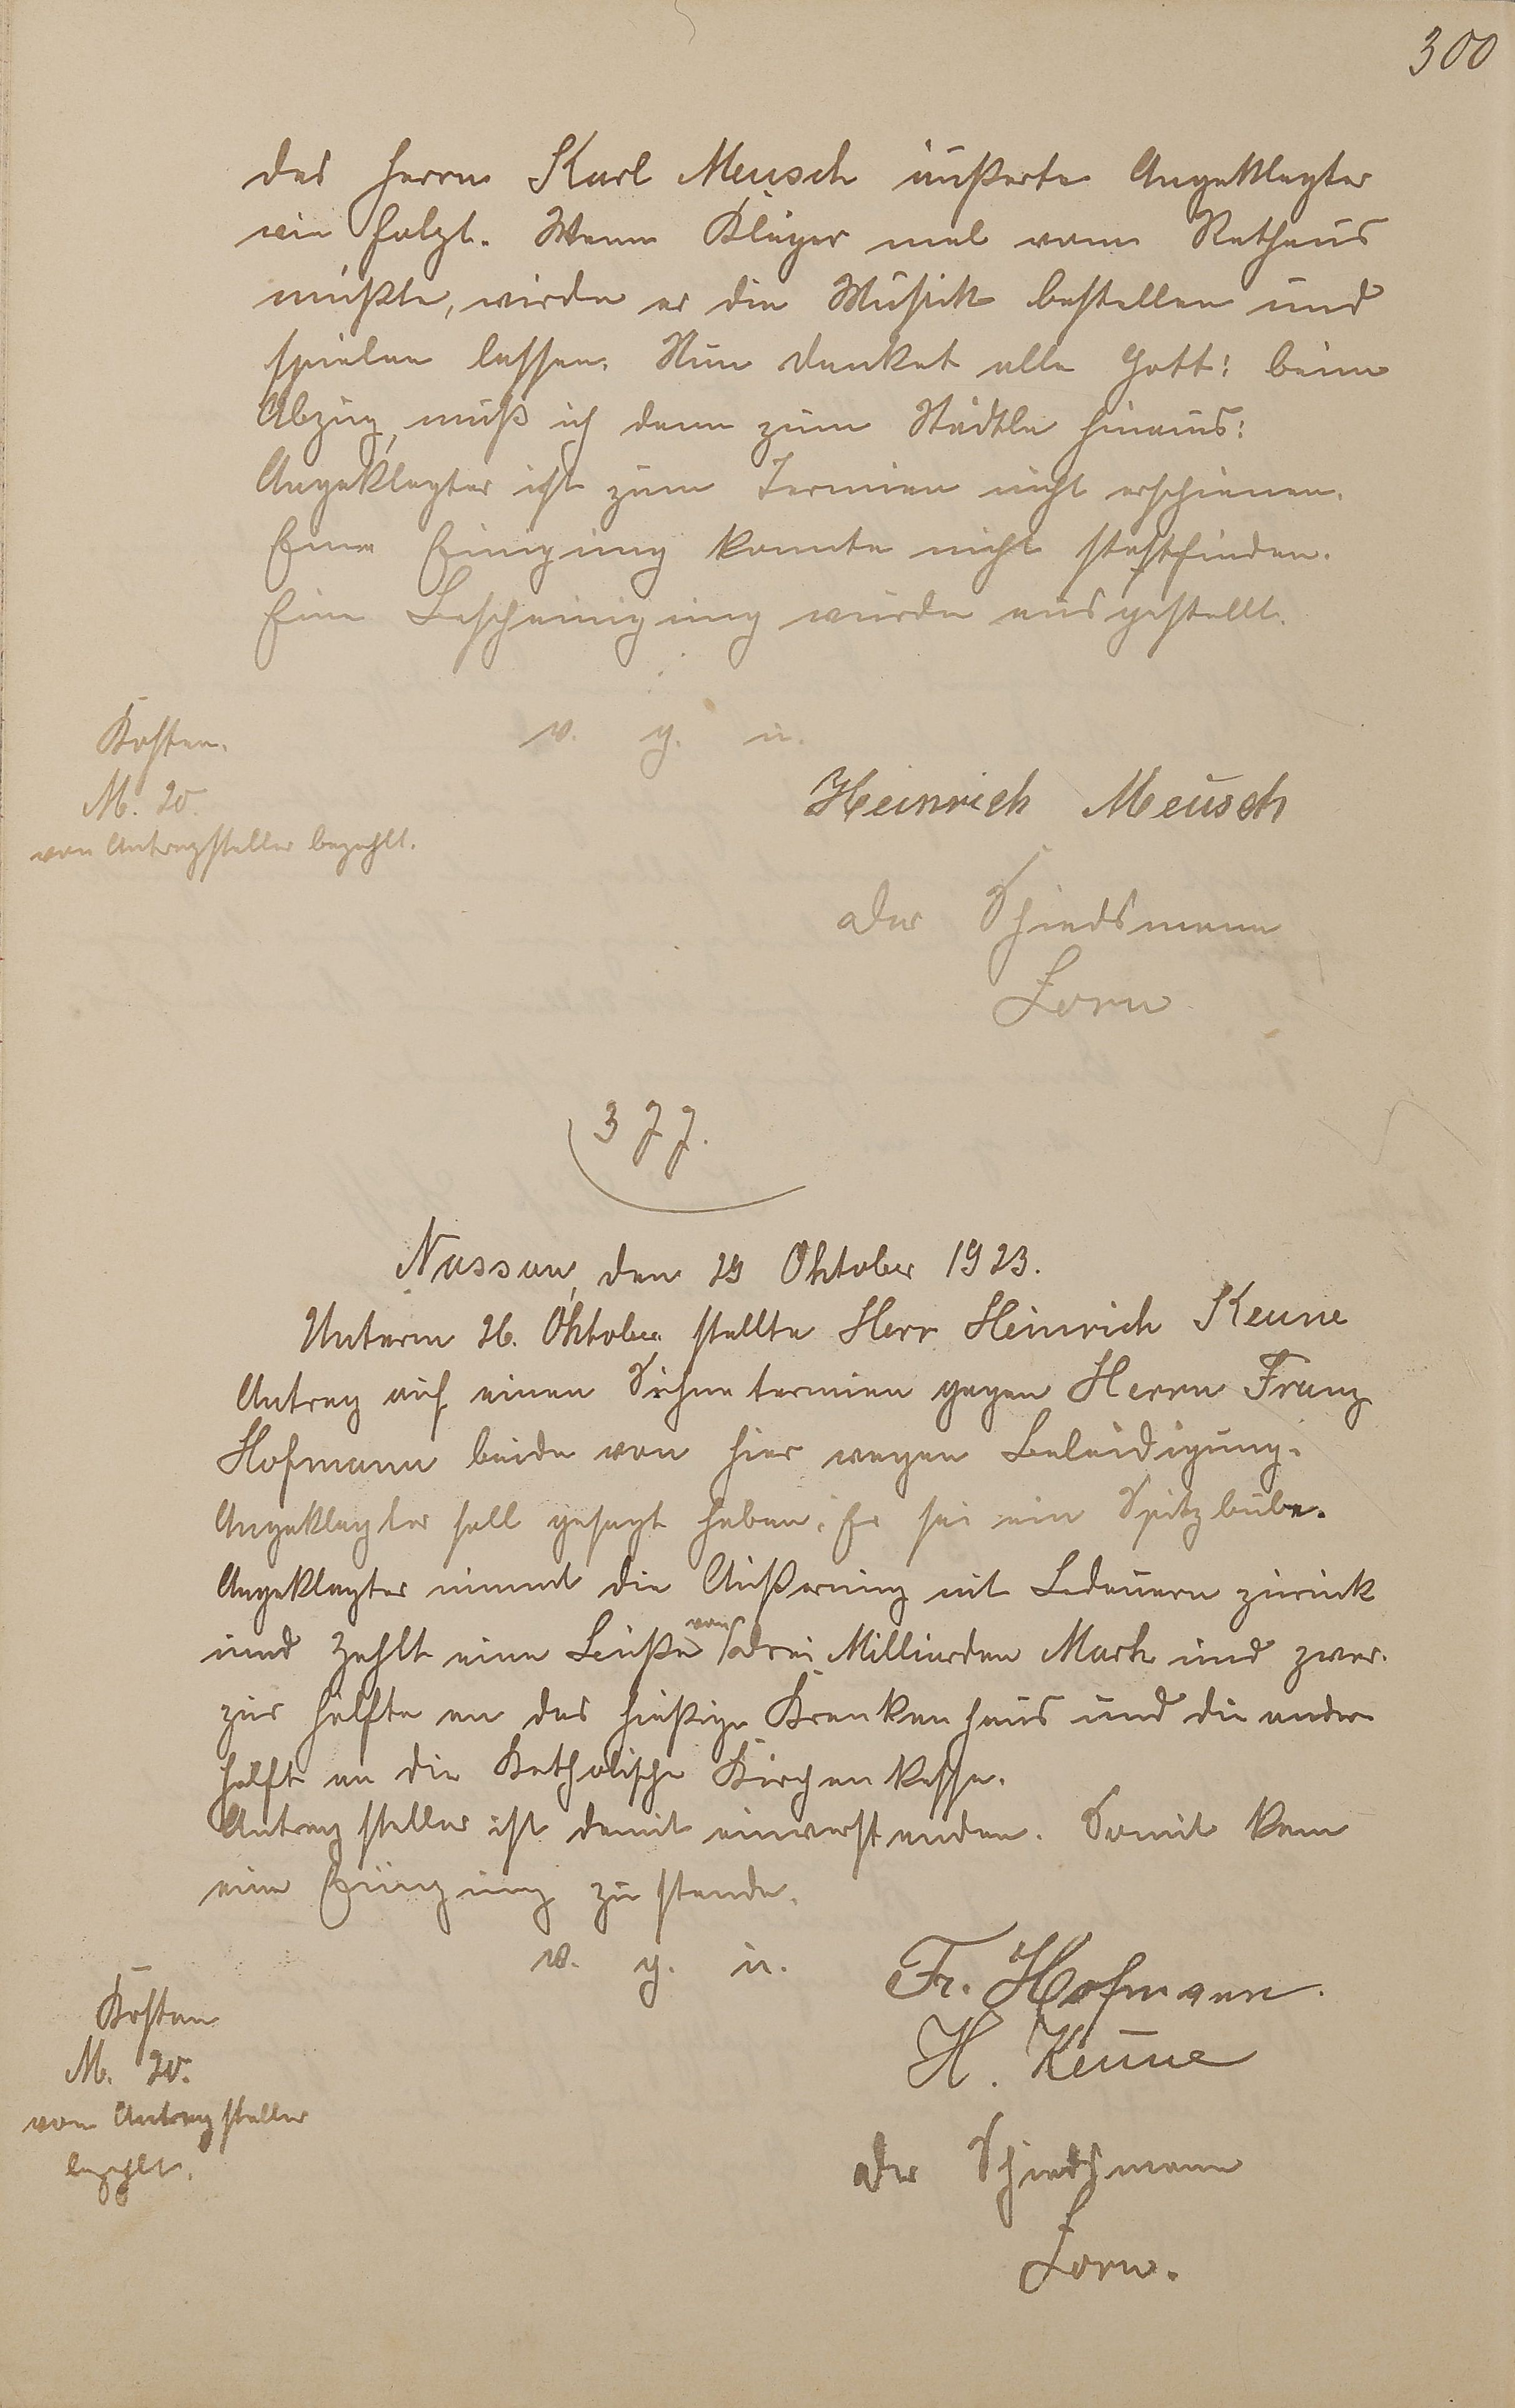 300
des Herrn Karl Meusch äußerte Angeklagter
wie folgt. Wenn Kläger mal vom Rathaus
müßte, würde er die Musik bestellen und
spielen lassen. Nun danket alle Gott: beim
Abzug, muß ich denn zum Städtle hinaus:
Angeklagter ist zum Termien nicht erschienen.
Eine Einigung konnte nicht stattfinden.
Eine Bescheinigung wurde ausgestellt.
v. g. u.
Kosten.
M. 20.
von Antragsteller bezahlt.
Heinrich Meusch
Der Schiedsmann
Zorn
377.
Nassau, den 29 Oktober 1923.
Unterm 26. Oktober stellte Herr Heinrich Keune
Antrag auf einen Sühnetermien gegen Herrn Franz
Hofmann beide von hier wegen Beleidigung.
Angeklagter soll gesagt haben. Er sei ein Spitzbube.
Angeklagter nimmt die Äußerung mit Bedauern zurück
und zahlt eine Buße von drei Milliarden Mark und zwar.
zur Hälfte an das hießige Krankenhaus und die andere
Hälft an die Katholische Kirchenkasse.
Antragsteller ist damit einverstanden. Somit kam
eine Einigung zu stande.
v. g. u.
Fr. Hofmann.
H. Keune
Kosten
M. 20.
vom Antragsteller
bezahlt.
Der Schiedsmann
Zorn.